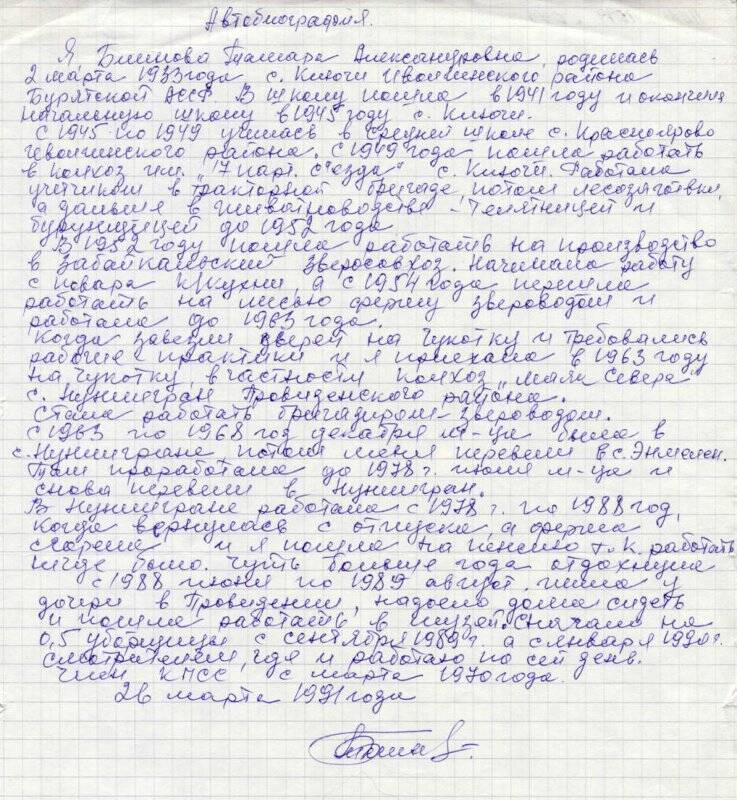 Автобиография.
Я, Блинова Тамара Александровна, родилась
2 марта 1933 года с. Ключи Иволгинского района
Бурятской АССР. В школу пошла в 1941 году и окончила
начальную школу в 1945 году с. Ключи.
С 1945 по 1949 училась в средней школе с. Красноярово
Иволгинского района. С 1949 года пошла работать
в колхоз им. "17 парт. съезда" с. Ключи. Работала
учётчиком в тракторной бригаде, потом лесозаготовки,
а дальше в животноводстве - телятницей и
до 1952 года
В 1952 году пошла работать на производство
в Забайкальский зверосовхоз. Начинала работу
с повара к/кухни, а с 1954 года перешла
работать на лисью ферму звероводом и
работала до 1963 года.
Когда завезли зверей на Чукотку и требовались
рабочие практики и я приехала в 1963 году
на Чукотку, в частности колхоз "Маяк Севера"
с. Нунлигран Провиденского района.
Стала работать бригадиром-звероводом.
С 1963 по 1968 год декабря м-ца была в
с. Нунлигране, потом меня перевели в с. Энмелен.
Там проработала до 1978 г. июля м-ца и
снова перевели в Нунлигран.
В Нунлигране работала с 1978 г. по 1988 год,
когда вернулась с отпуска, а ферма
сгорела и я пошла на пенсию т.к. работать
негде было. Чуть больше года отдохнула
с 1988 июня по 1989 август жила у
дочери в Провидении, надоело дома сидеть
и пошла работать в музей. Сначала на
0,5 уборщицы с сентября 1989 г. а с января 1990 г.
смотрителем, где и работаю по сей день.
Член КПСС с марта 1970 года.
26 марта 1991 года